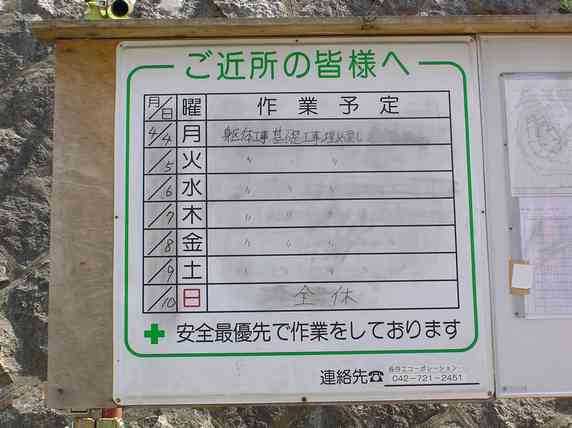 ご近所の皆様へ
月/日 曜 作業予定
4/4 月 躯体工事、基礎工事、埋め戻し
/5 火 〃 〃
/6 水 〃 〃 〃
/7 木 〃 〃 〃
/8 金 〃 〃 〃
/9 土 〃 〃 〃
/10 日 全休
安全最優先で作業をしております
連絡先☎ 042-721-2451